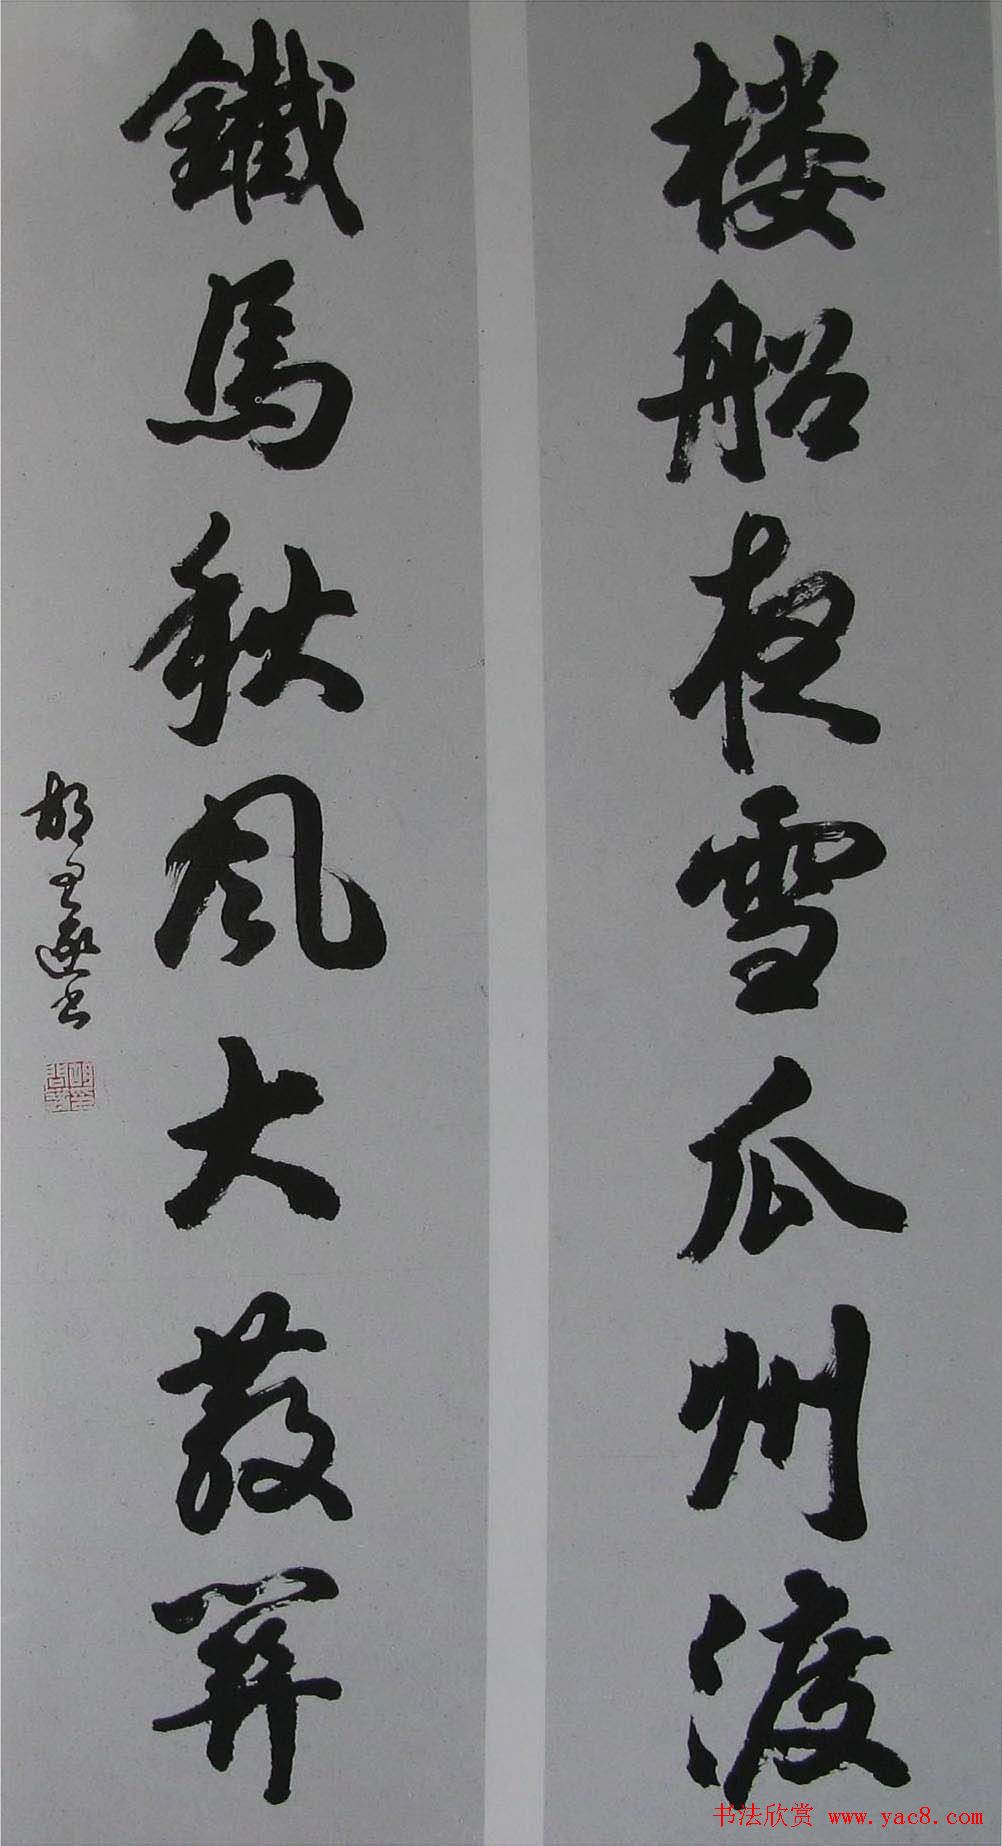 楼船夜雪瓜州渡
鐵馬秋風大散關
胡君遜書
书法欣赏 www.yac8.com